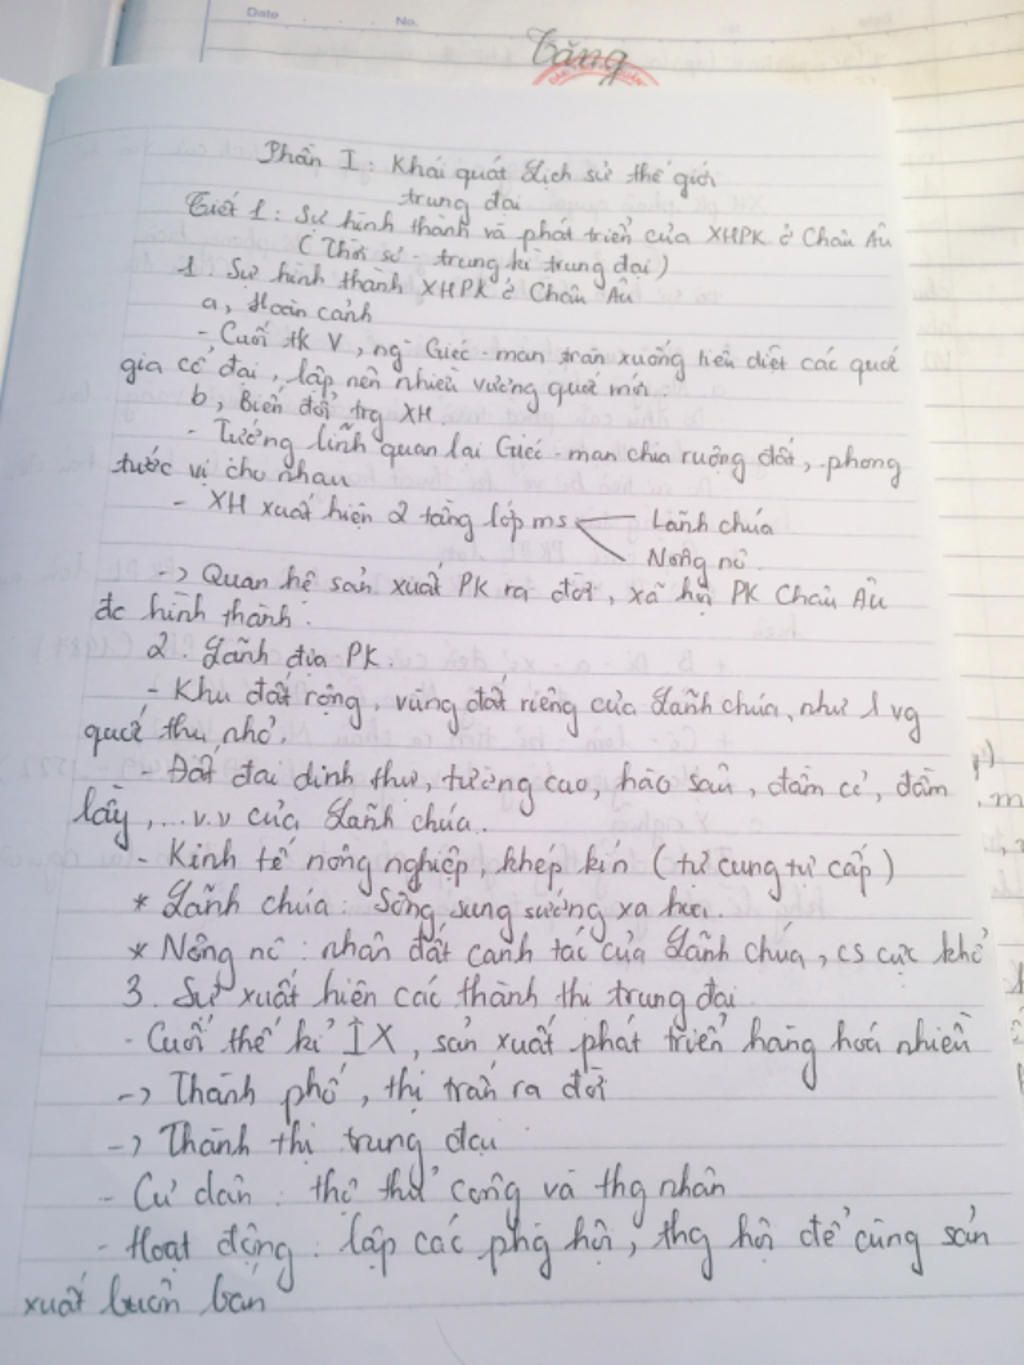 Date . . . No.
Tăng
Phần I : Khái quát Lịch sử thế giới
trung đại
Tiết 1 : Sự hình thành và phát triển của XHPK ở Châu Âu
( Thời sơ - trung kì trung đại )
1. Sự hình thành XHPK ở Châu Âu
a, Hoàn cảnh
- Cuối tk V , ng Giéc - man tràn xuống tiêu diệt các quốc
gia cổ đại , lập nên nhiều vương quốc mới .
b, Biến đổi trg XH .
- Tướng lĩnh quan lại Giéc - man chia ruộng đất , phong
tước vị cho nhau
- XH xuất hiện 2 tầng lớp ms Lãnh chúa
Nông nô .
-> Quan hệ sản xuất PK ra đời , xã hội PK Châu Âu
đc hình thành .
2. Lãnh địa PK .
- Khu đất rộng , vùng đất riêng của Lãnh chúa , như 1 vg
quốc thu nhỏ .
- Đất đai dinh thự , tường cao , hào sâu , đầm cỏ , đầm
lầy , ... v.v của Lãnh chúa .
- Kinh tế nông nghiệp , khép kín ( tự cung tự cấp )
* Lãnh chúa : Sống sung sướng xa hoa .
* Nông nô : nhận đất canh tác của Lãnh chúa , cs cực khổ
3. Sự xuất hiện các thành thị trung đại
- Cuối thế kỉ IX , sản xuất phát triển hàng hoá nhiều
-> Thành phố , thị trấn ra đời
-> Thành thị trung đại
- Cư dân : thợ thủ công và thg nhân
- Hoạt động : lập các phg hội , thg hội để cùng sản
xuất buôn bán